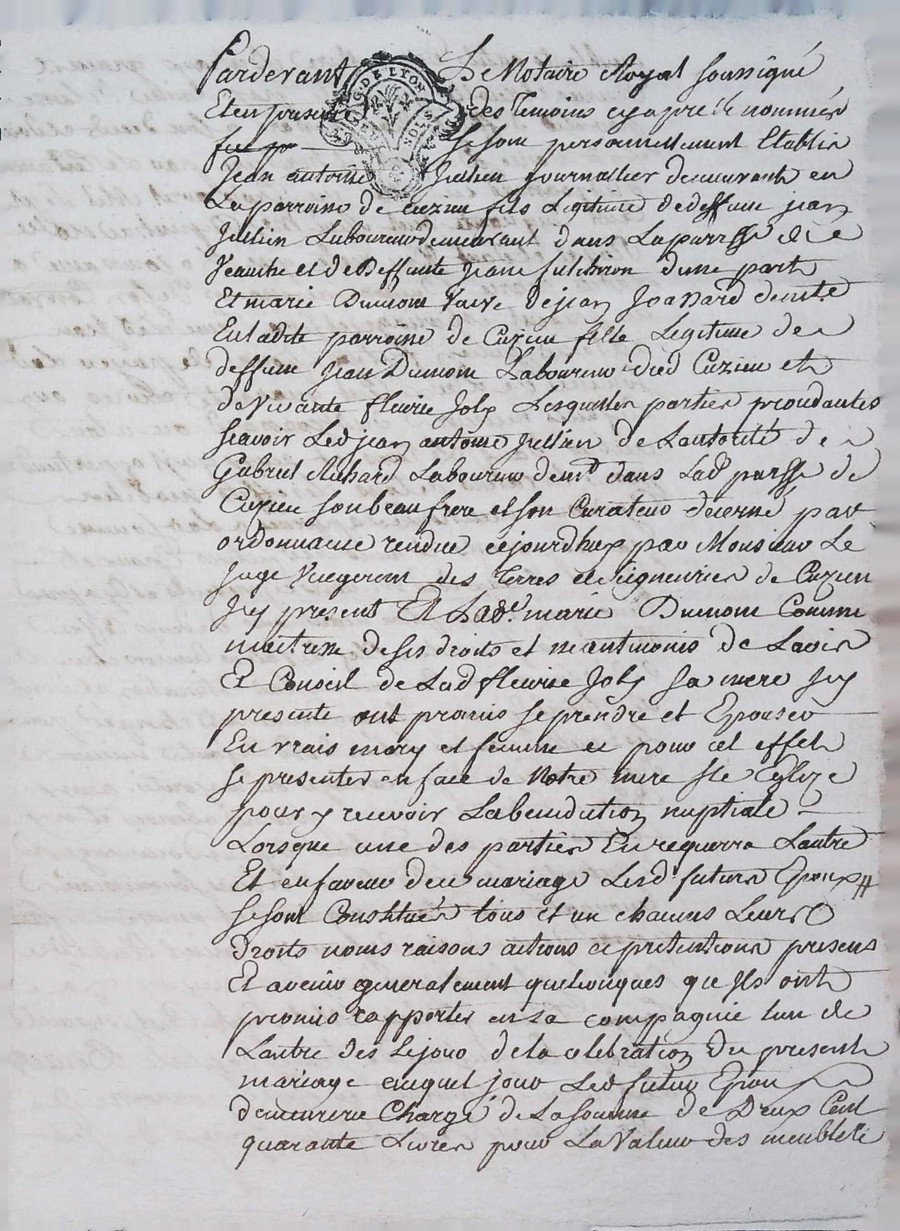 Pardevant Le Notaire Royal soussigné
Et en presence des temoins cy apres nommés
se sont personnellement Etablis
Jean antoine Jullien journallier demeurant en
La parroisse de cuzieu fils Legitime de deffunt jean
Jullien Laboureur demeurant dans La parrsse de
Veauche et de Deffunte jeanne fulchiron d'une part
Et marie Dumont veuve de jean joannard demte
En ladite parroisse de Cuzieu fille Legitime de
deffunt jean Dumont Laboureur dud Cuzieu et
de vivante fleurie Joly Lesquelles parties procedantes
scavoir Led jean antoine jullien de Lautorité de
Gabriel Richard Laboureur demt dans Lad parsse de
Cuzieu son beau frere et son Curateur decerné par
ordonnance rendue cejourdhuy par Monsieur Le
juge Viegerent des Terres et Seigneuries de Cuzieu
Icy present Et Lade marie Dumont Comme
maitresse de ses droits et neantmoins de Lavis
Et Conseil de Lad fleurie Joly sa mere icy
presente ont promis se prendre et Epouser
En vrais mary et femme et pour cet effet
se presenter en face de Notre mere Ste Eglize
pour y recevoir La benediction nuptiale
Lorsque une des parties En requerra Lautre
Et en faveur du mariage Lesd futurs Epoux
se sont Constitués tous et un chacuns Leurs
droits noms raisons actions et pretentions presens
Et avenir generalement quelconques que Ils ont
promis rapporter en La compagnie lun de
Lautre des Le jour de la celebration du present
mariage auquel jour Led futur Epoux
demeurera Chargé de La somme de Deux Cent
quarante Livres pour La Valeur des meubles